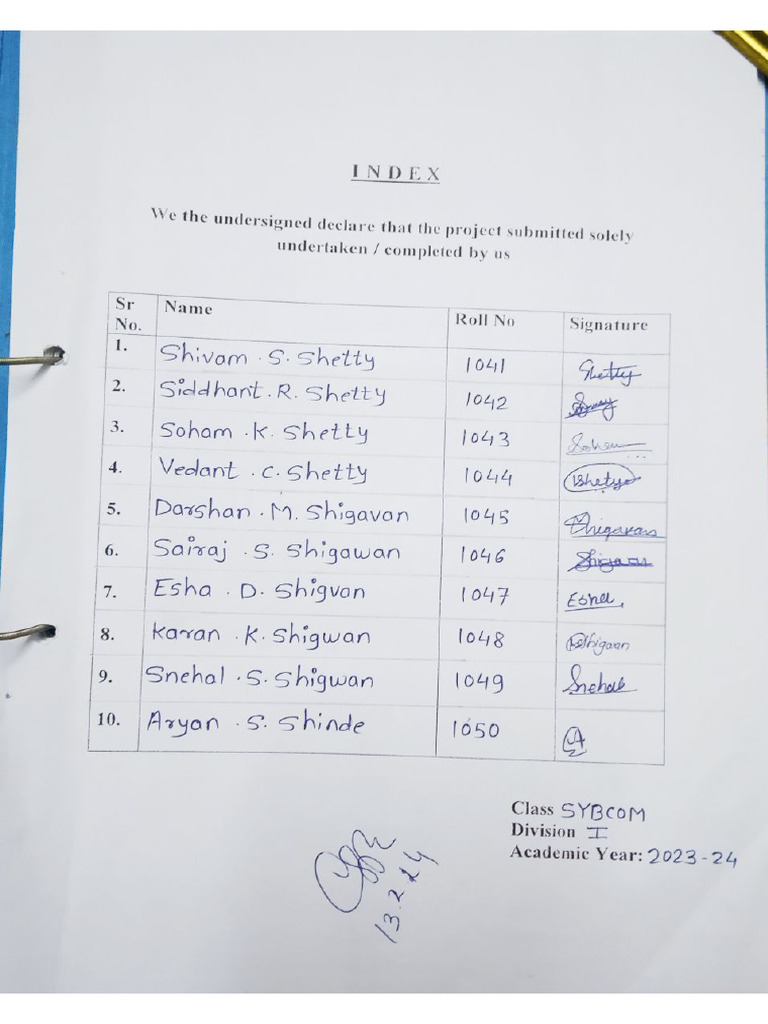 INDEX
We the undersigned declare that the project submitted solely
undertaken / completed by us
Sr No. Name Roll No Signature
1. Shivam . S. Shetty 1041 Shetty
2. Siddhant . R. Shetty 1042
3. Soham . K. Shetty 1043 Soham
4. Vedant . C. Shetty 1044 VShetty
5. Darshan . M. Shigavan 1045 Shigavan
6. Sairaj . S. Shigawan 1046
7. Esha . D. Shigvan 1047 Esha
8. Karan . K. Shigwan 1048
9. Snehal . S. Shigwan 1049 Snehal
10. Aryan . S. Shinde 1050
Class SYBCOM
Division I
Academic Year: 2023-24
13.2.24